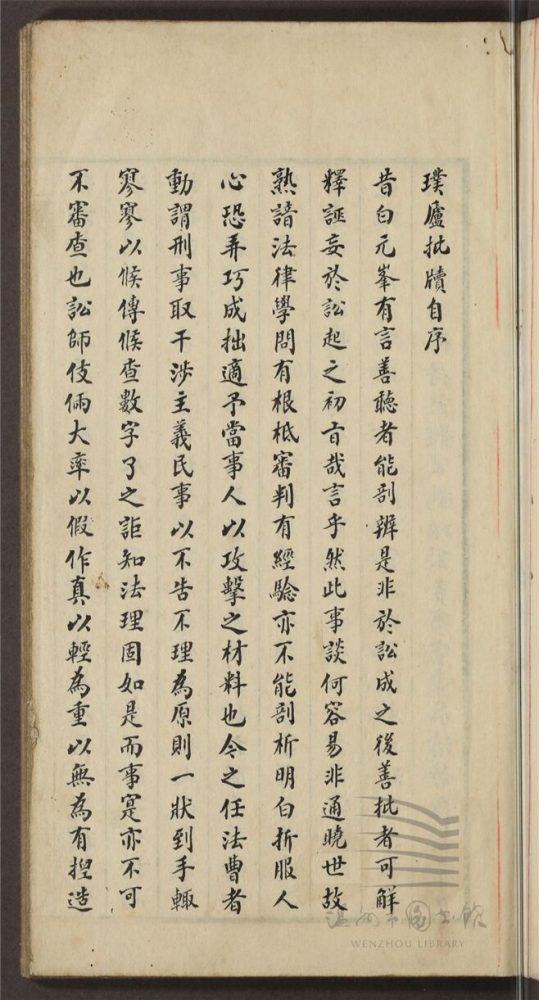 璞廬批牘自序
昔白元峯有言善聽者能剖辨是非於訟成之後善批者可解
釋誣妄於訟起之初旨哉言乎然此事談何容易非通曉世故
熟諳法律學問有根柢審判有經驗亦不能剖析明白折服人
心恐弄巧成拙適予當事人以攻擊之材料也今之任法曹者
動謂刑事取干涉主義民事以不告不理為原則一狀到手輙
寥寥以候傳候查數字了之詎知法理固如是而事寔亦不可
不審查也訟師伎倆大率以假作真以輕為重以無為有揑造
温州市圖書館
WENZHOU LIBRARY